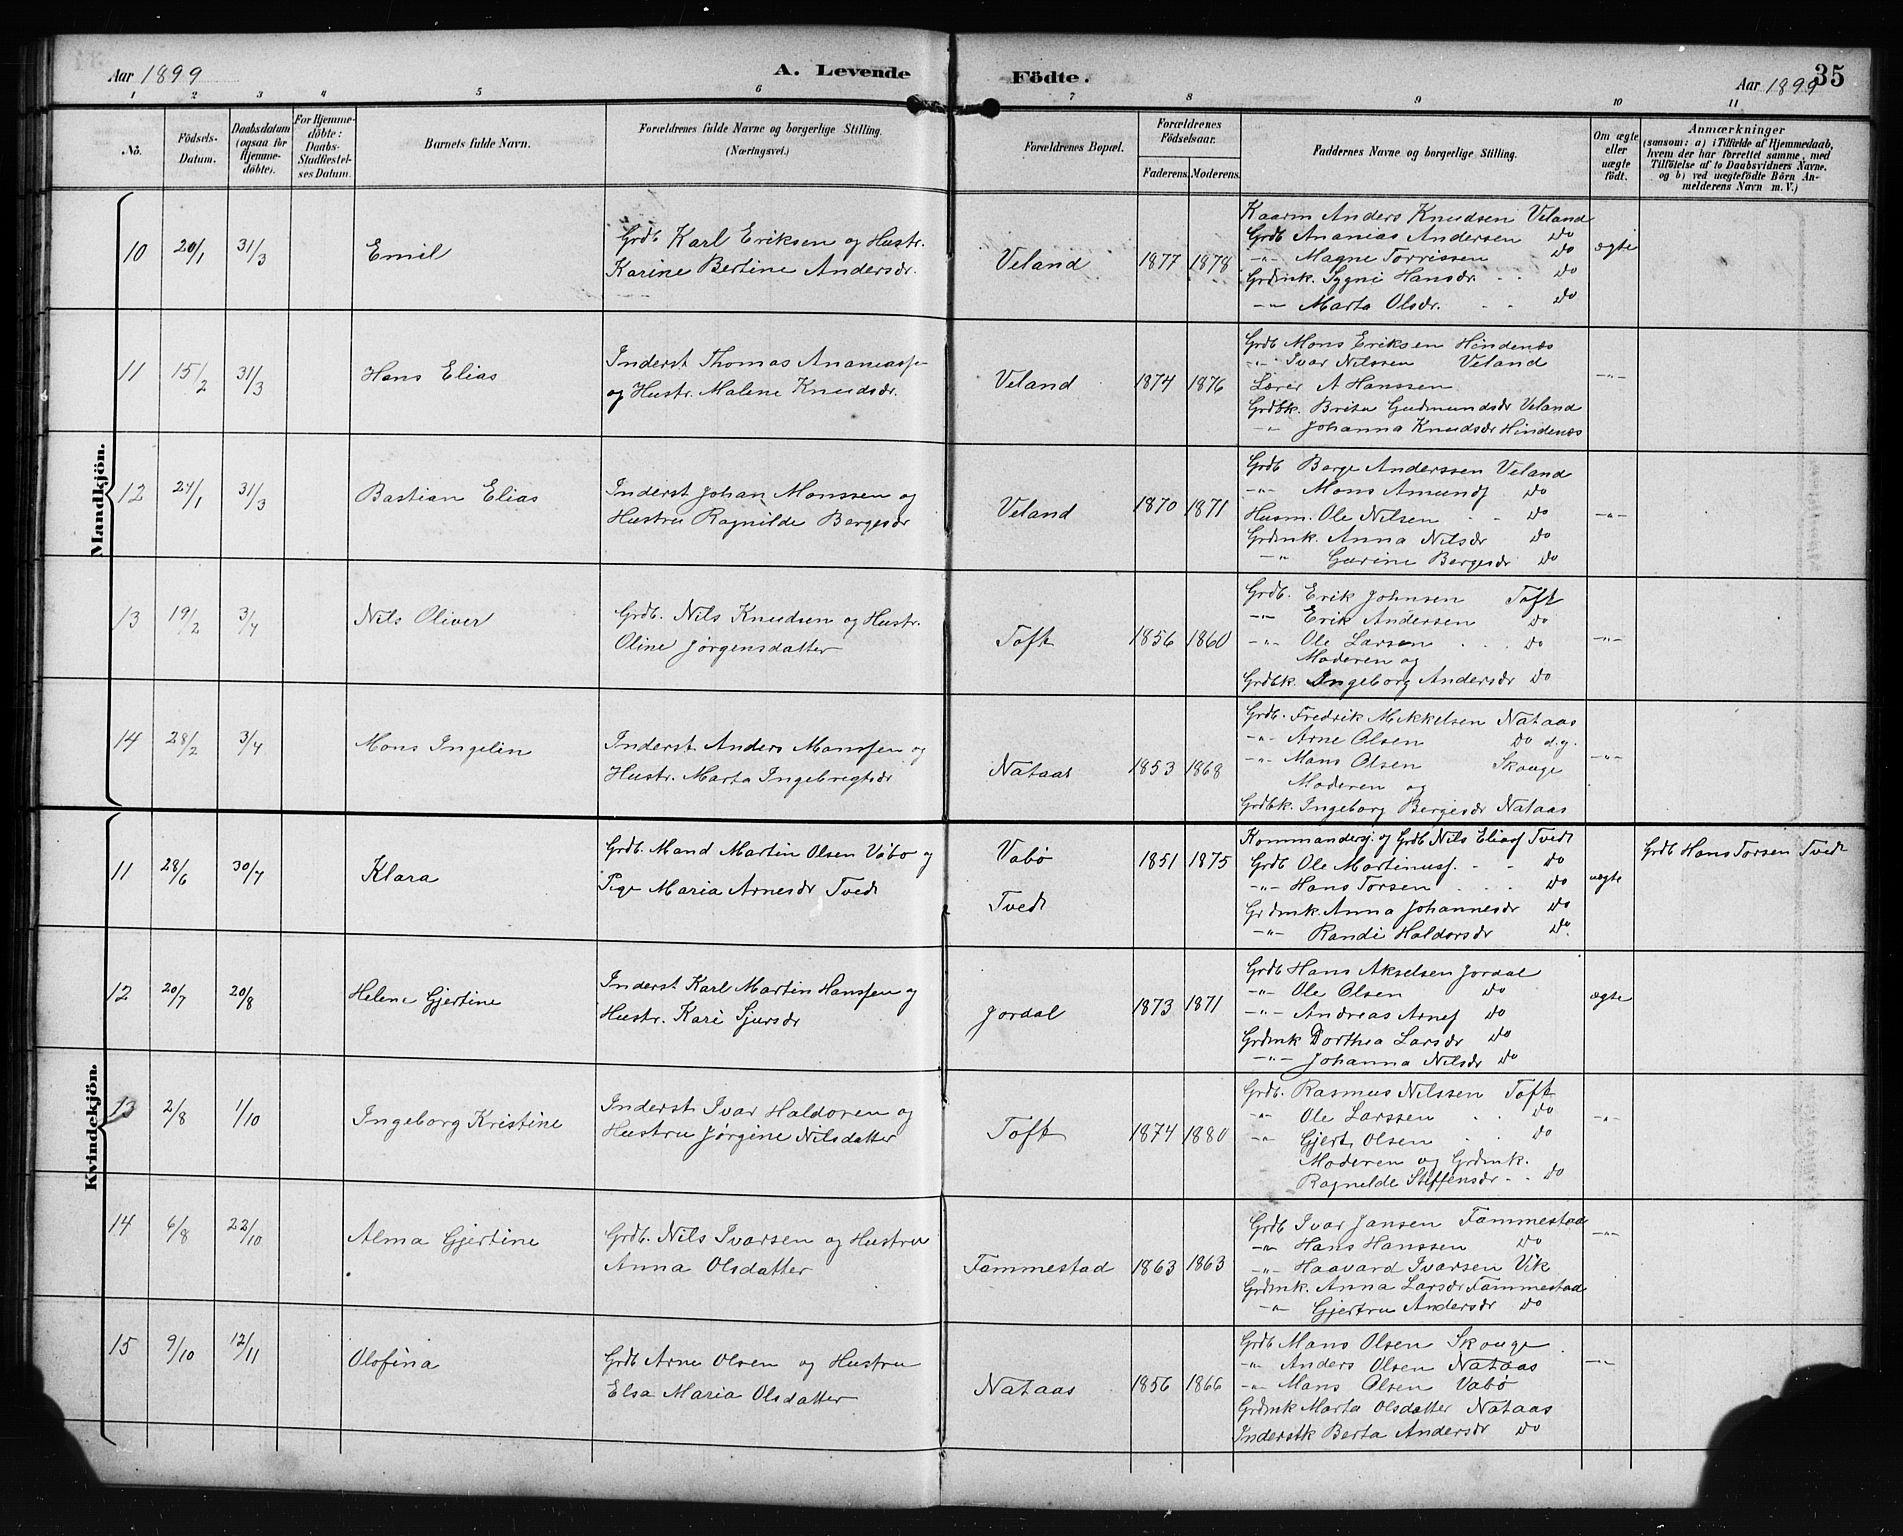 Aar 1899
A. Levende Födte.
35
Aar 1899
1 2 3 4 5 6 7 8 9 10 11
Nô.
Födsels-
Datum.
Daabsdatum
(ogsaa för
Hjemme-
döbte).
For Hjemme-
döbte:
Daabs-
Stadfæstel-
ses Datum.
Barnets fulde Navn.
Forældrenes fulde Navne og borgerlige Stilling.
(Næringsvei.)
Forældrenes Bopæl.
Forældrenes
Födselsaar.
Faderens. Moderens.
Faddernes Navne og borgerlige Stilling.
Om ægte
eller
uægte
födt.
Anmærkninger
(saasom: a) i Tilfælde af Hjemmedaab,
hvem der har forrettet samme, med
Tilföielse af to Daabsvidners Navne.
og b) ved uægtefödte Börn An-
melderens Navn m. V.)
Mandkjön.
10 20/1 31/3 Emil
Grdb. Karl Eriksen og Hustr.
Karine Bertine Andersdr.
Veland 1877 1878
Kaarm Anders Knudsen Veland
Grdb Ananias Andersen Do
-"- Magne Torrissen Do
Grdmk. Sygni Hansdr. Do
-"- Marta Olsdr. Do
ægte
11 15/2 31/3 Hans Elias
Inderst Thomas Ananiass.
og Hustr. Malene Knudsdr.
Veland 1874 1876
Grdb Mons Eriksen Hindenæs
-"- Ivar Nilssen Veland
Lærer A Hanssen
Grdbk. Brita Gudmundsdr Veland
-"- Johanna Knudsdr Hindenæs
-"-
12 24/1 31/3 Bastian Elias
Inderst Johan Monssen og
Hustru Ragnilde Bergesdr
Veland 1870 1871
Grdb Berge Anderssen Veland
-"- Mons Amunds Do
Husm. Ole Nilsen Do
Grdmk. Anna Nilsdr Do
-"- Gurine Bergesdr Do
-"-
13 19/2 3/4 Nils Oliver
Grdb. Nils Knudsen og Hustr.
Oline Jørgensdatter
Toft 1856 1860
Grdb. Erik Johnsen Toft
-"- Erik Andersen Do
-"- Ole Larsen Do
Moderen og
Grdbk. Ingeborg Andersdr Do
-"-
14 28/2 3/4 Mons Ingelin
Inderst Anders Monssen og
Hustr. Marta Ingebregtsdr
Nataas 1853 1868
Grdb. Fredrik Mikkelsen Nataas
-"- Arne Olsen Do d.y.
-"- Mons Olsen Skouge
Moderen og
Grdbk. Ingeborg Bergesdr Nataas
-"-
Kvindekjön.
11 28/6 30/7 Klara
Grdb. Mand Martin Olsen Vabø og
Pige Maria Arnesdr Tvedt
Vabø
Tvedt
1851 1875
Kommandersj. og Grdb Nils Elias Tvedt
Grdb Ole Martinuss. Do
-"- Hans Torsen Do
Grdmk. Anna Johannesdr Do
-"- Randi Haldorsdr Do.
uægte
Grdb Hans Torsen Tvedt
12 20/7 20/8 Helene Gjertine
Inderst Karl Martin Hanssen og
Hustr. Kari Sjursdr
Jordal 1873 1871
Grdb Hans Akselsen Jordal
-"- Ole Olsen Do
-"- Andreas Arnes Do
Grdmk Dorthea Larsdr Do
-"- Johanna Nilsdr Do
ægte
13 2/8 1/10 Ingeborg Kristine
Inderst Ivar Haldoren og
Hustru Jørgine Nilsdatter
Toft 1874 1880
Grdb. Rasmus Nilssen Toft
-"- Ole Larssen Do
-"- Gjert Olsen Do
Moderen og Grdmk.
Ragnilde Steffensdr Do
-"-
14 6/8 22/10 Alma Gjertine
Grdb. Nils Ivarsen og Hustru
Anna Olsdatter
Fammestad 1863 1863
Grdb Ivar Jansen Fammestad
-"- Hans Hanssen Do
-"- Haavard Ivarsen Vik
Grdmk. Anna Larsdr Fammestad
-"- Gjertru Andersdr Do
-"-
15 9/10 12/11 Olofina
Grdb Arne Olsen og Hustru
Elsa Maria Olsdatter
Nataas 1856 1866
Grdb Mons Olsen Skouge
-"- Anders Olsen Nataas
-"- Mons Olsen Vabø
Grdmk Marta Olsdatter Nataas
Inderstk Berta Andersdr Do
-"-